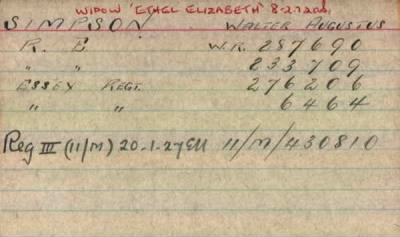 WIDOW "ETHEL ELIZABETH"
SIMPSON WALTER AUGUSTUS
R. E W.R. 287690
" " 233709
ESSEX REGT. 276206
" " 6464
Reg III (11/M) 20-1-27 11/M/430810